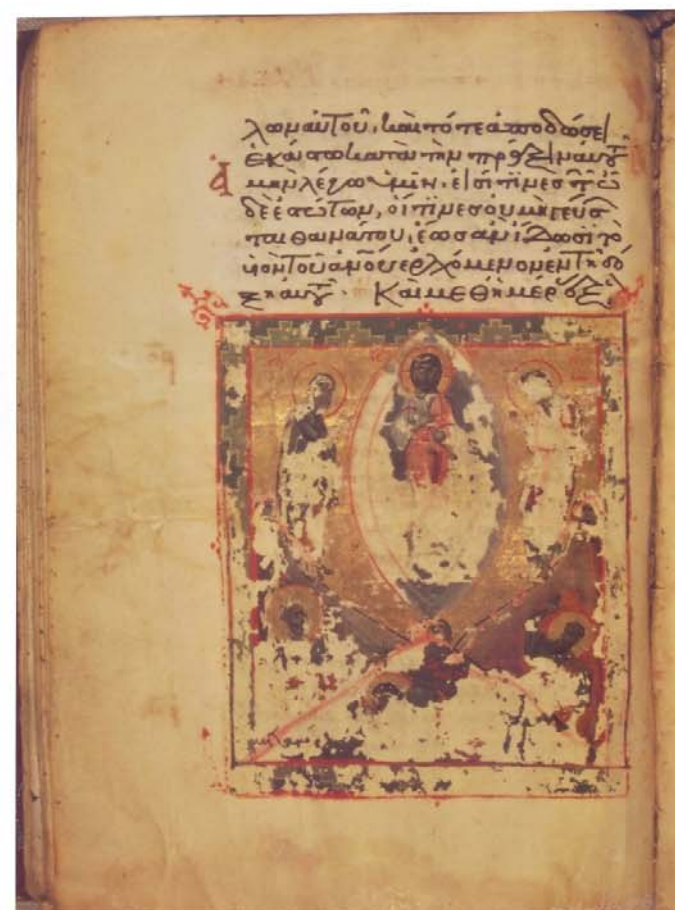 λων αὐτοῦ, καὶ τότε ἀποδώσει
ἑκάστω κατὰ τὴν πρᾶξιν αὐτ
ἀμὴν λέγω ὑμῖν. εἰσί τινες τῶν
δε ἑστώτων, οἵτινες οὐ μὴ γεύσ
ται θανάτου, ἕως ἂν ἴδωσι τὸ
υἱὸν τοῦ ἀνου ἐρχόμενον ἐν τῆ δό
ξη αὐτ. Καὶ μεθ ἡμέρας